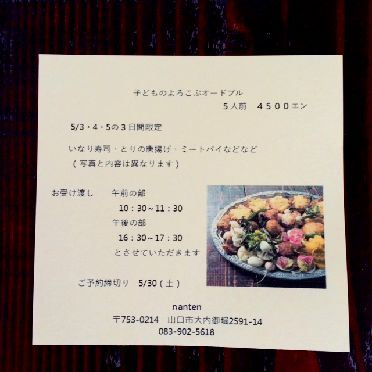 子どものよろこぶオードブル
5人前 4500エン
5/3・4・5の3日間限定
いなり寿司・とりの唐揚げ・ミートパイなどなど
(写真と内容は異なります)
お受け渡し 午前の部
10:30~11:30
午後の部
16:30~17:30
とさせていただきます
ご予約締切り 5/30(土)
nanten
〒753-0214 山口市大内御堀2591-14
083-902-5618